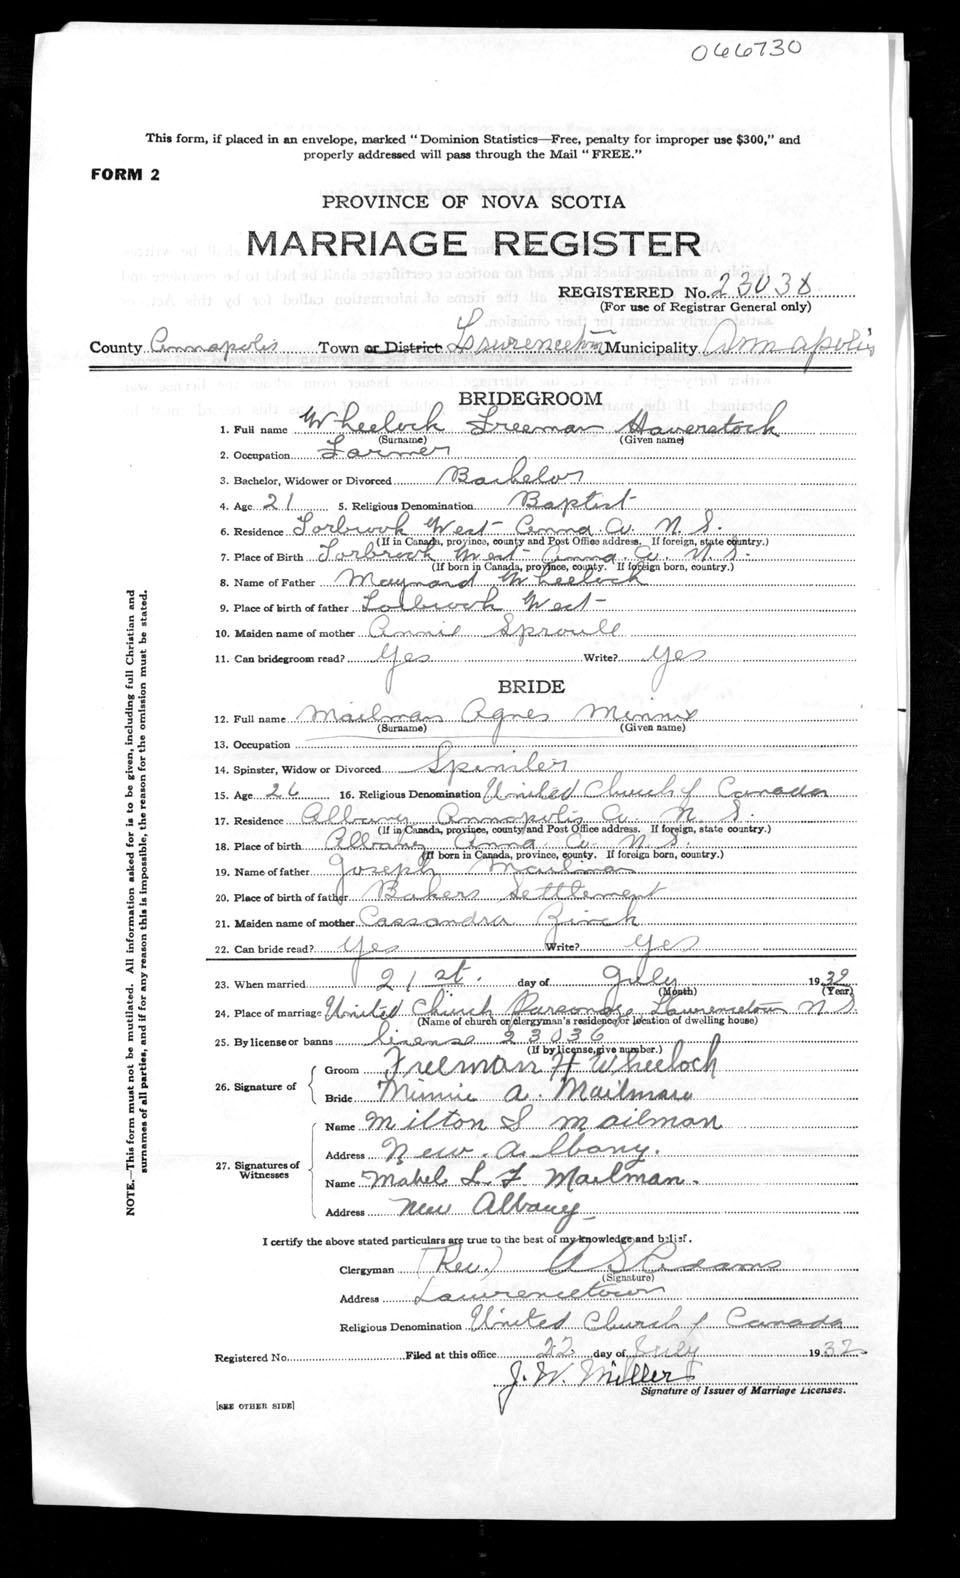 066730
This form, if placed in an envelope, marked "Dominion Statistics—Free, penalty for improper use $300," and
properly addressed will pass through the Mail "FREE."
FORM 2
PROVINCE OF NOVA SCOTIA
MARRIAGE REGISTER
REGISTERED No. 23038
(For use of Registrar General only)
County Annapolis Town or District Lawrencetown Municipality Annapolis
BRIDEGROOM
1. Full name Wheelock Freeman Haverstock
(Surname) (Given name)
2. Occupation Farmer
3. Bachelor, Widower or Divorced Bachelor
4. Age 21 5. Religious Denomination Baptist
6. Residence Torbrook West Anna. Co. N. S.
(If in Canada, province, county and Post Office address. If foreign, state country.)
7. Place of Birth Torbrook West Anna. Co. N. S.
(If born in Canada, province, county. If foreign born, country.)
8. Name of Father Maynard Wheelock
9. Place of birth of father Torbrook West
10. Maiden name of mother Annie Sproule
11. Can bridegroom read? Yes Write? Yes
BRIDE
12. Full name Mailman Agnes Minnie
(Surname) (Given name)
13. Occupation
14. Spinster, Widow or Divorced Spinster
15. Age 26 16. Religious Denomination United Church of Canada
17. Residence Albany Annapolis Co. N. S.
(If in Canada, province, county and Post Office address. If foreign, state country.)
18. Place of birth Albany Anna Co. N.S.
(If born in Canada, province, county. If foreign born, country.)
19. Name of father Joseph Mailman
20. Place of birth of father Bakers Settlement
21. Maiden name of mother Cassandra Zinck
22. Can bride read? Yes Write? Yes
23. When married 21st. day of July 1932
(Month) (Year)
24. Place of marriage United Church Parsonage Lawrencetown N.S.
(Name of church or clergyman's residence or location of dwelling house)
25. By license or banns license 23036
(If by license, give number.)
26. Signature of
Groom Freeman H Wheelock
Bride Minnie A. Mailman
27. Signatures of Witnesses
Name Milton S Mailman
Address New. Albany.
Name Mabel L. F. Mailman.
Address New Albany
I certify the above stated particulars are true to the best of my knowledge and belief.
Clergyman (Rev.) A S Adams
(Signature)
Address Lawrencetown
Religious Denomination United Church of Canada
Registered No. Filed at this office 22 day of July 1932
J. W. Miller
Signature of Issuer of Marriage Licenses.
[SEE OTHER SIDE]
NOTE.—This form must not be mutilated. All information asked for is to be given, including full Christian and
surnames of all parties, and if for any reason this is impossible, the reason for the omission must be stated.